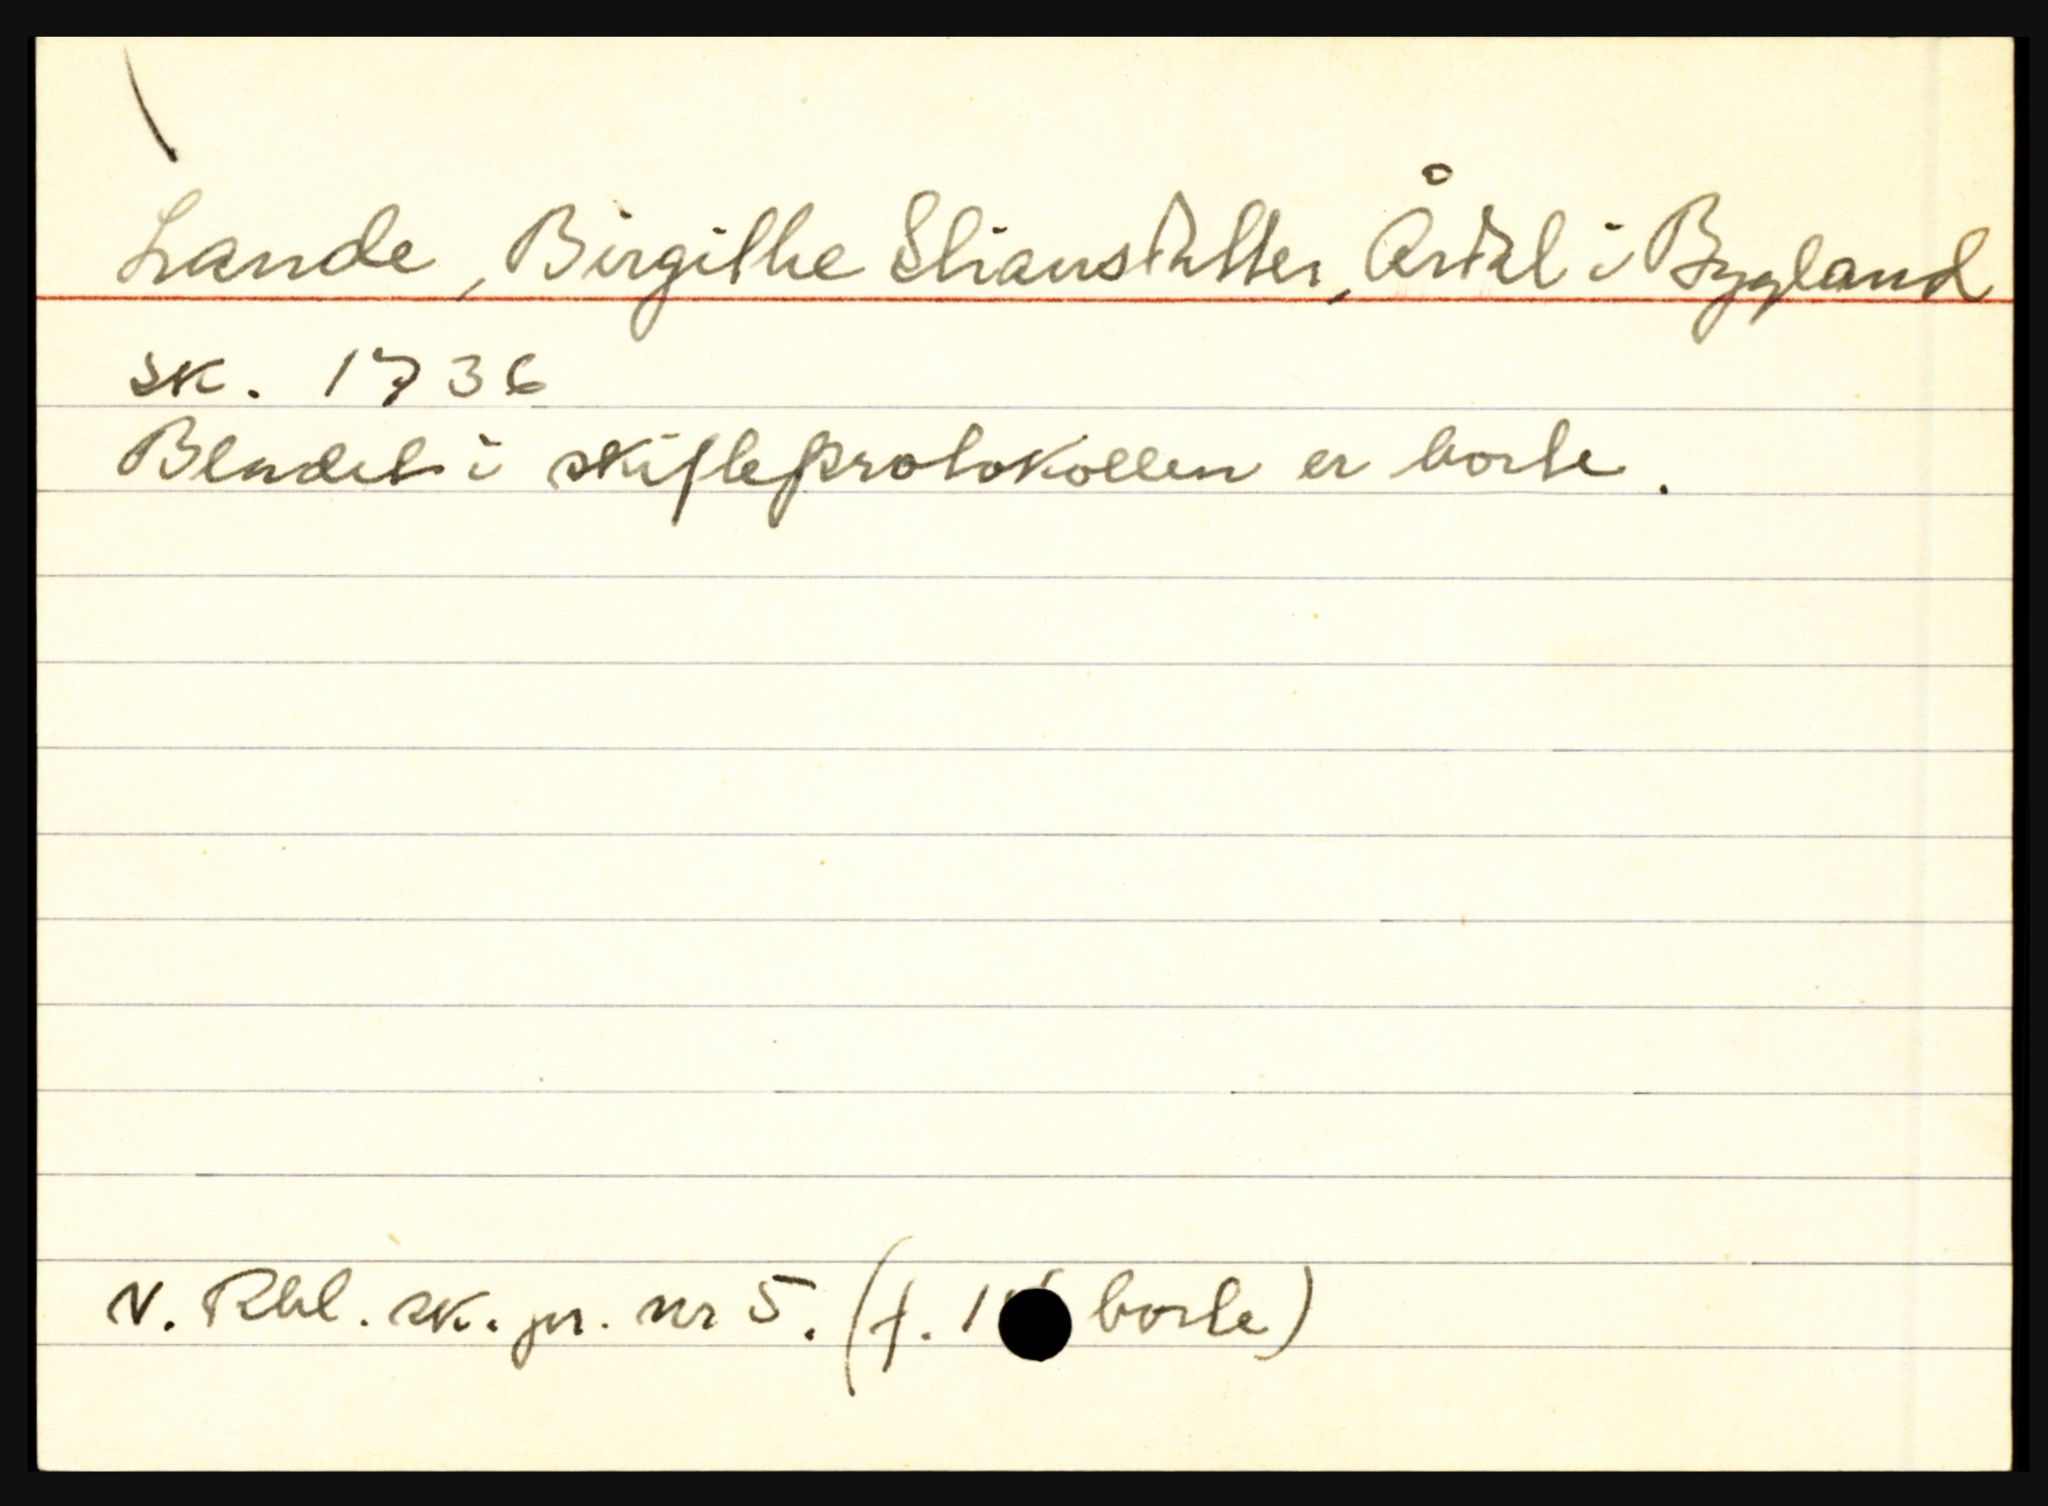 Lande, Birgithe Eliansdatter, Årdal i Bygland
sk. 1736
Bladet i skifteprotokollen er borte.
N. Rbl. sk. pr. nr 5. (f. 1 borte)